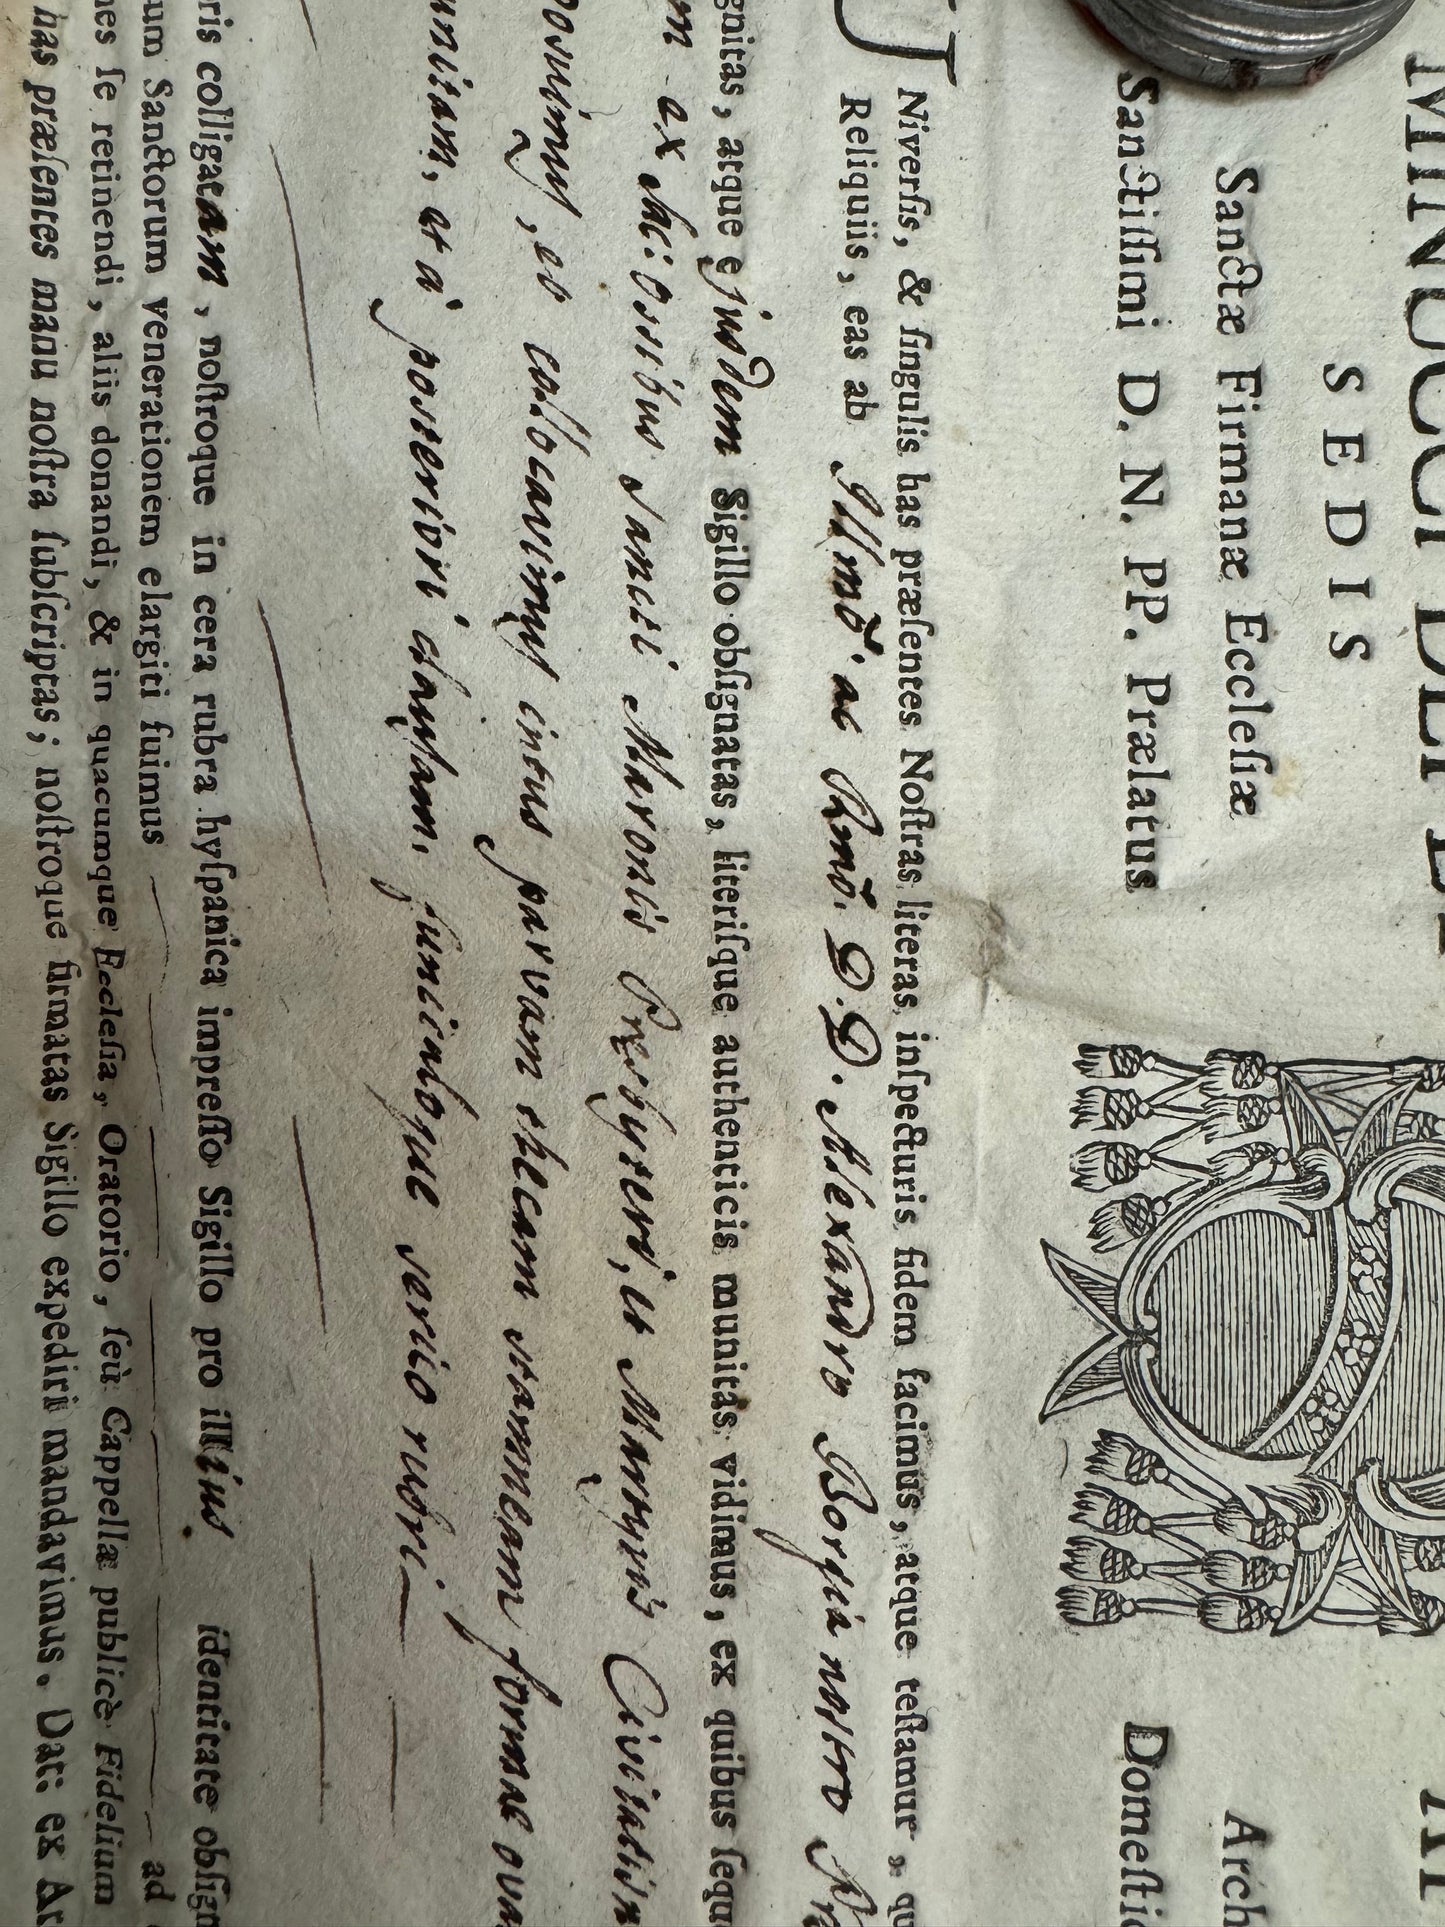 MINUCCI DE
SEDIS
Sanctæ Firmanæ Eccleſiæ Arch
Sanctiſſimi D. N. PP. Prælatus Domeſtic
UNiverſis, & ſingulis has præſentes Noſtras literas inſpecturis fidem facimus, atque teſtamur, qu
Reliquiis, eas ab Illmo. ac Rmo. D. D. Alexandro Borgia nostro Præ
gnitas, atque ejusdem Sigillo obſignatas, literiſque authenticis munitas vidimus, ex quibus ſequ
m ex Sac: Ossibus Sancti Maronis Presbyteri, et Martyris Civitatis n
posuimus, et collocavimus intus parvam thecam stanneam formae ova
unitam, et a posteriori clausam, funiculoque serico rubri
ris colligatam, noſtroque in cera rubra hyſpanica impreſſo Sigillo pro illius identitate obſign
um Sanctorum venerationem elargiti fuimus ad
nes ſe retinendi, aliis donandi, & in quacumque Eccleſia, Oratorio, ſeù Cappella publicè Fidelium
has præſentes manu noſtra ſubſcriptas; noſtroque firmatas Sigillo expediri mandavimus. Dat: ex Ar